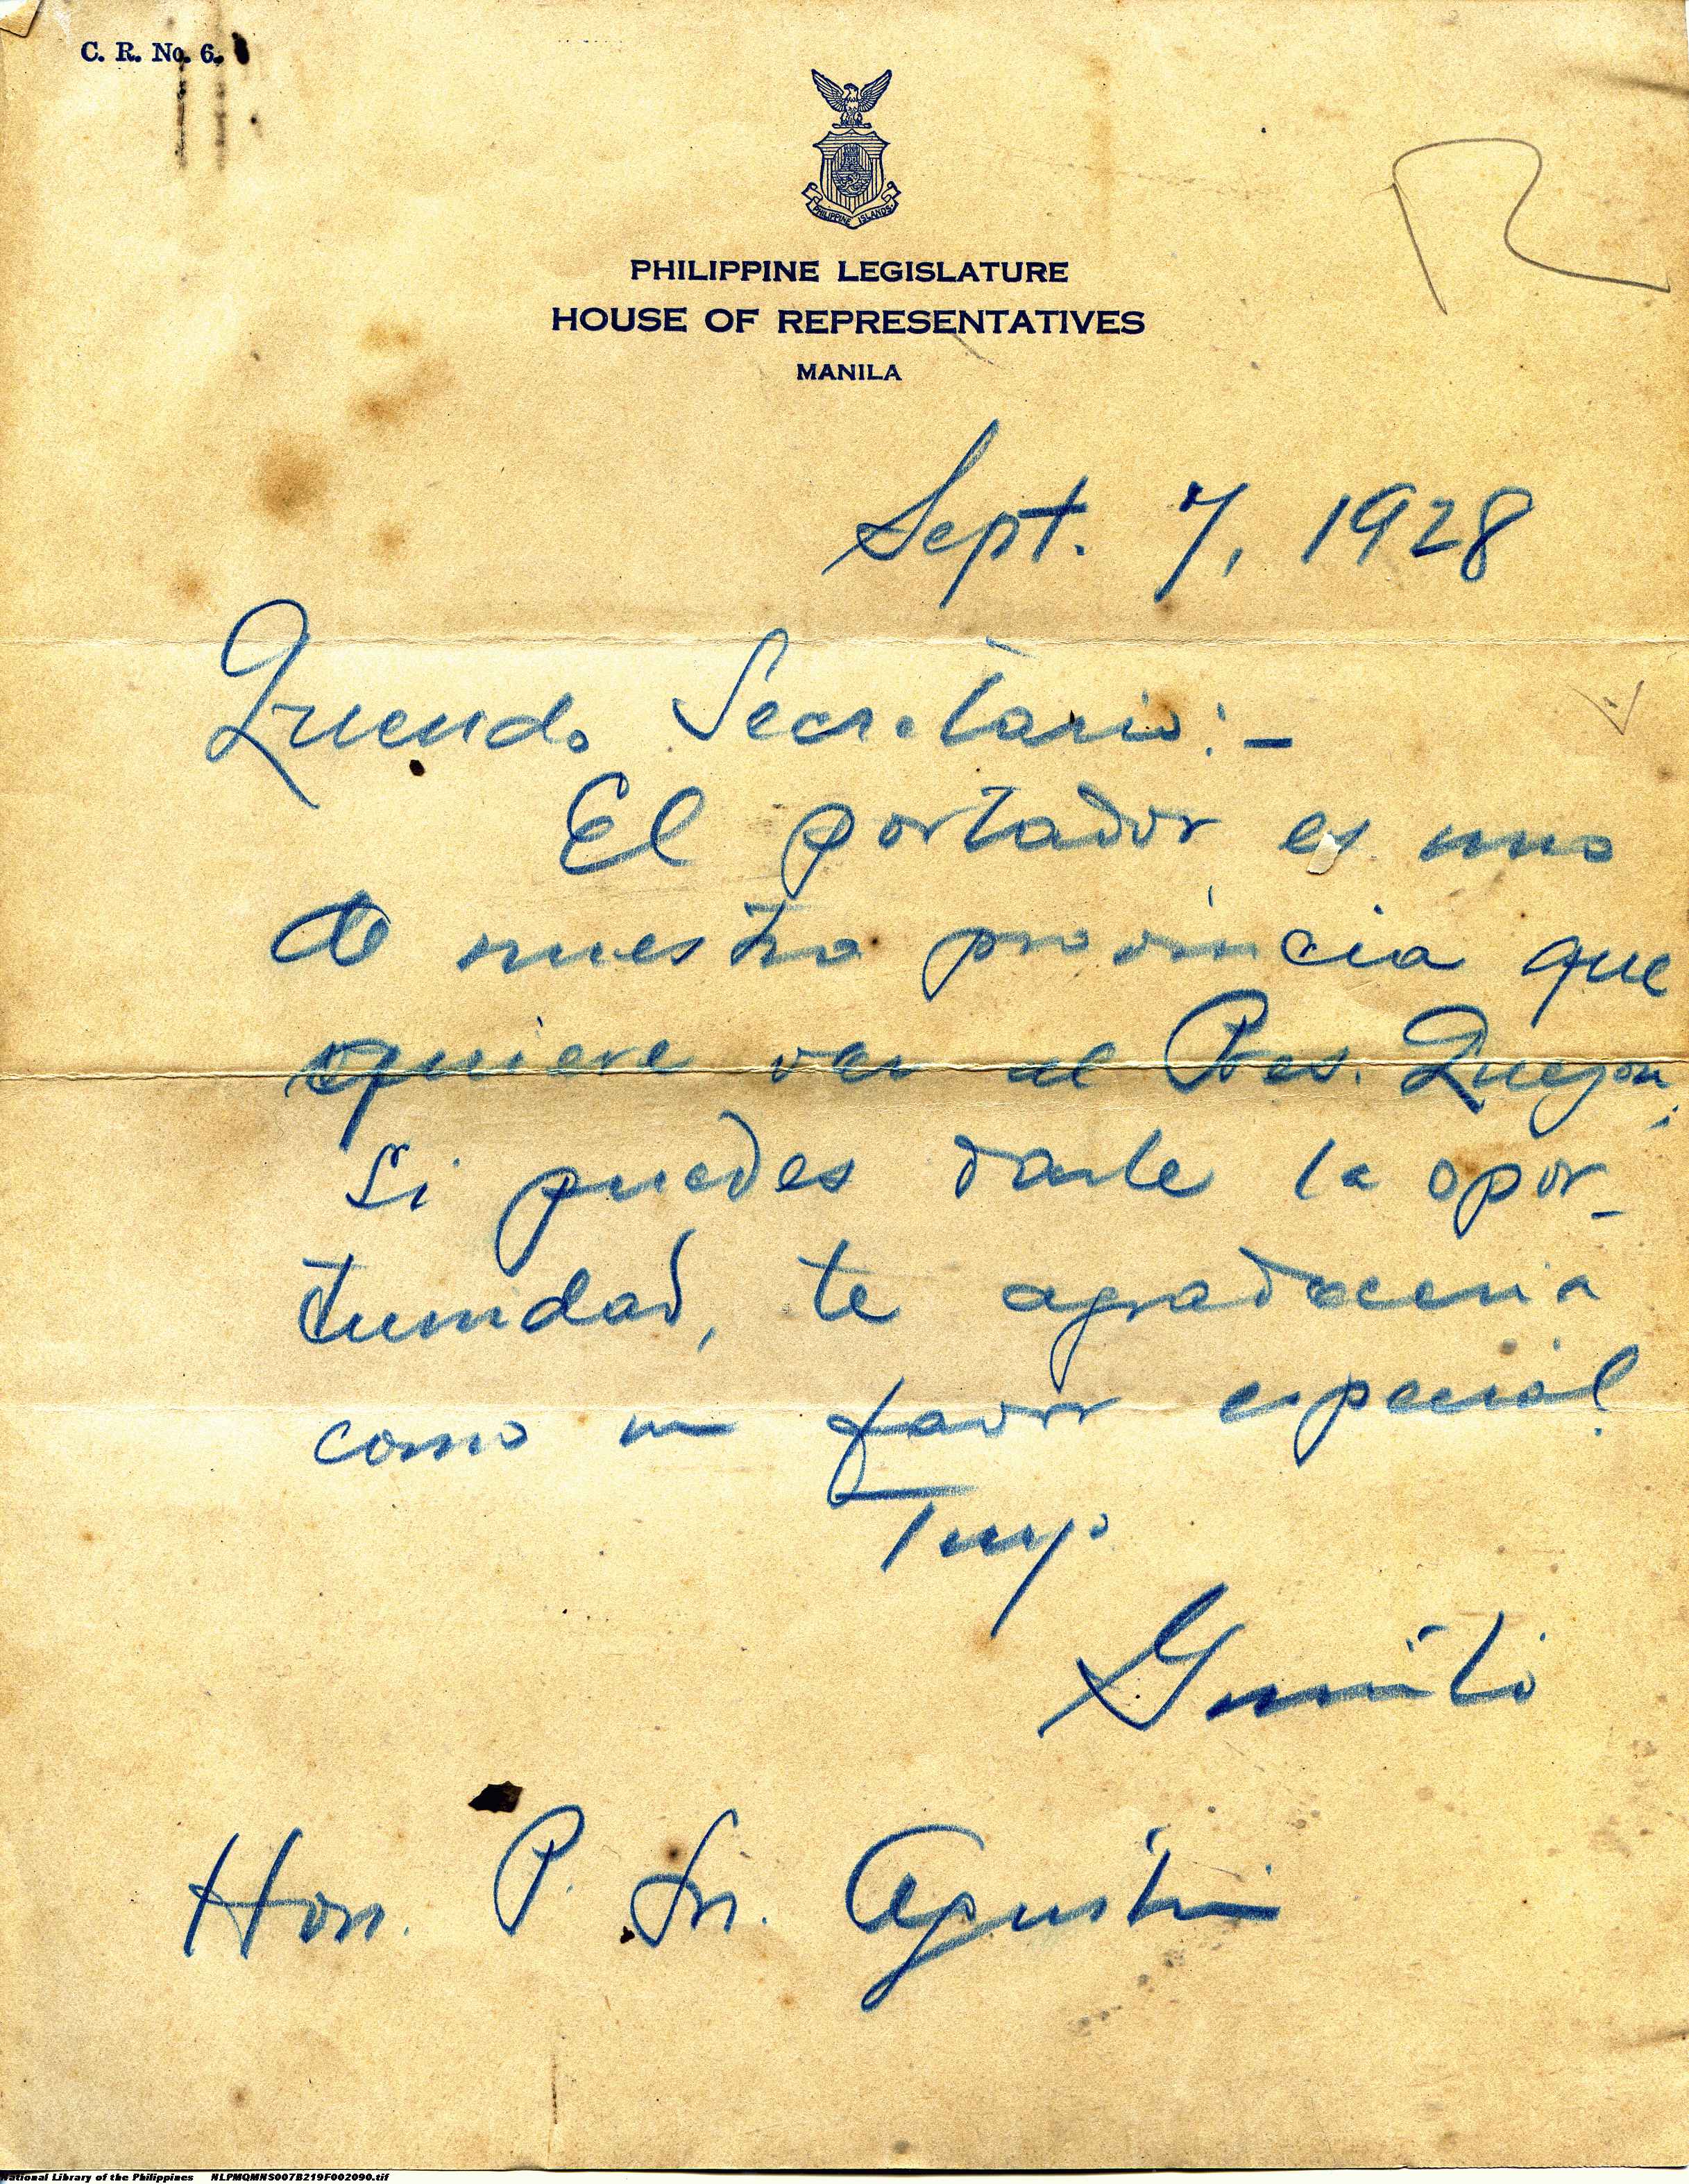 C. R. No. 6.
PHILIPPINE ISLANDS
PHILIPPINE LEGISLATURE
HOUSE OF REPRESENTATIVES
MANILA
R
Sept. 7, 1928
Querido Secretario:-
El portador es uno
de nuestra provincia que
quiere ver al Pres. Quezon;
Si puedes darle la opor-
tunidad, te agradeceria
como un favor especial.
Tuyo
Hon. P. Sn. Agustin
National Library of the Philippines NLPMQMNS007B219F002090.tif